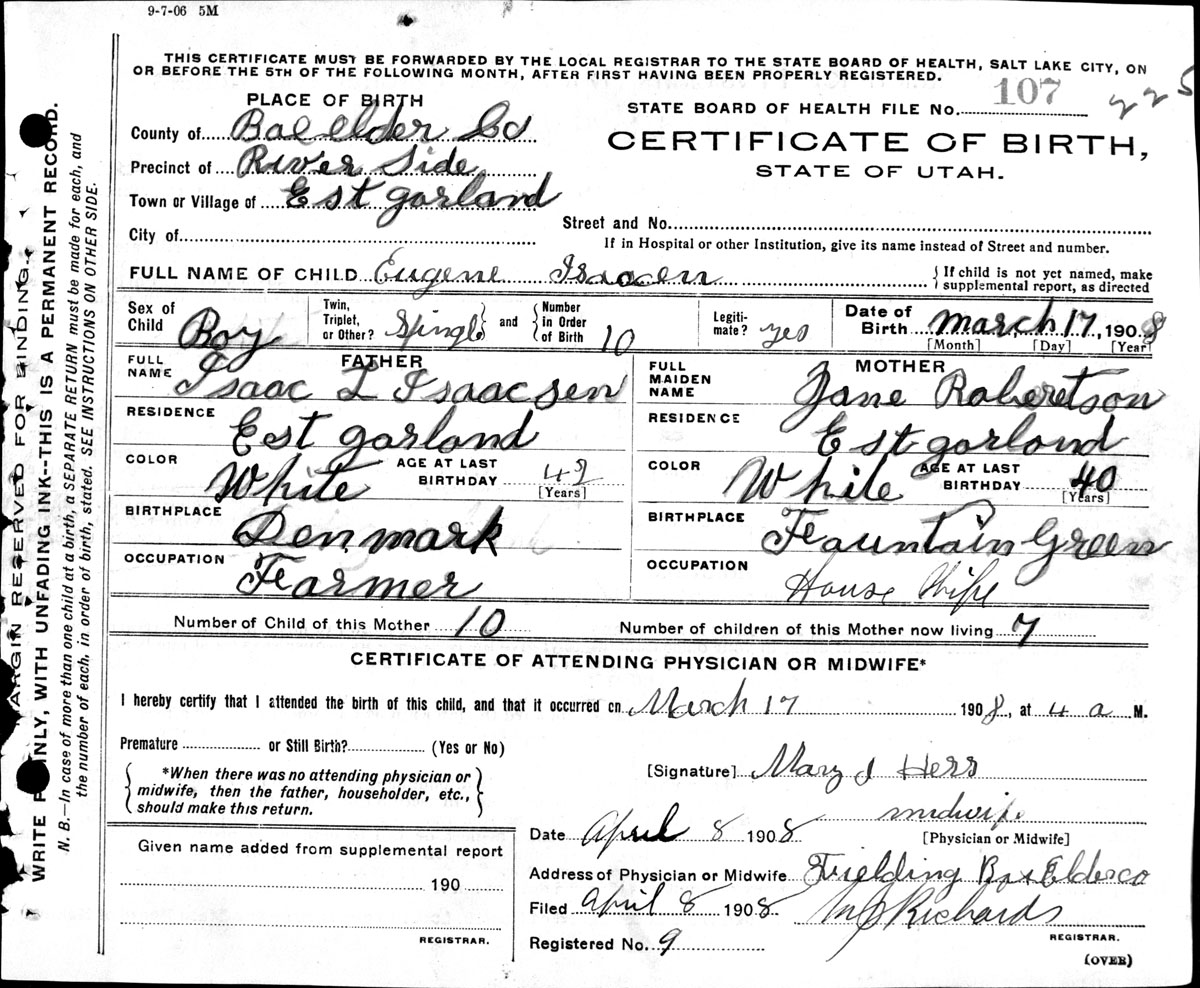 9-7-06 5M
THIS CERTIFICATE MUST BE FORWARDED BY THE LOCAL REGISTRAR TO THE STATE BOARD OF HEALTH, SALT LAKE CITY, ON
OR BEFORE THE 5TH OF THE FOLLOWING MONTH, AFTER FIRST HAVING BEEN PROPERLY REGISTERED.
PLACE OF BIRTH
STATE BOARD OF HEALTH FILE No. 107 225
County of Box elder Co
CERTIFICATE OF BIRTH,
STATE OF UTAH.
Precinct of River Side
Town or Village of Est garland
Street and No.
City of
If in Hospital or other Institution, give its name instead of Street and number.
FULL NAME OF CHILD Eugene Isaacen
{ If child is not yet named, make
supplemental report, as directed
Sex of Child Boy
Twin, Triplet, or Other? Spingl } and { Number in Order of Birth 10
Legiti-mate? yes
Date of Birth March, 17, 1908
[Month] [Day] [Year]
FATHER
FULL NAME Isaac I Isaacsen
MOTHER
FULL MAIDEN NAME Jane Robertson
RESIDENCE Est garland
RESIDENCE Est garland
COLOR White AGE AT LAST BIRTHDAY 49 [Years]
COLOR White AGE AT LAST BIRTHDAY 40 [Years]
BIRTHPLACE Denmark
BIRTHPLACE Fountain Green
OCCUPATION Farmer
OCCUPATION House Wife
Number of Child of this Mother 10
Number of children of this Mother now living 7
CERTIFICATE OF ATTENDING PHYSICIAN OR MIDWIFE*
I hereby certify that I attended the birth of this child, and that it occurred on March 17 1908, at 4 a M.
Premature or Still Birth? (Yes or No)
{ *When there was no attending physician or
midwife, then the father, householder, etc.,
should make this return. }
[Signature] Mary J Hess
midwife
[Physician or Midwife]
Date April 8 1908
Address of Physician or Midwife Fielding Box Elder co
Filed April 8 1908 Richards
REGISTRAR.
Registered No. 9
(OVER)
Given name added from supplemental report
190
REGISTRAR.
MARGIN RESERVED FOR BINDING.
WRITE PLAINLY, WITH UNFADING INK--THIS IS A PERMANENT RECORD.
N. B.—In case of more than one child at a birth, a SEPARATE RETURN must be made for each, and
the number of each, in order of birth, stated. SEE INSTRUCTIONS ON OTHER SIDE.